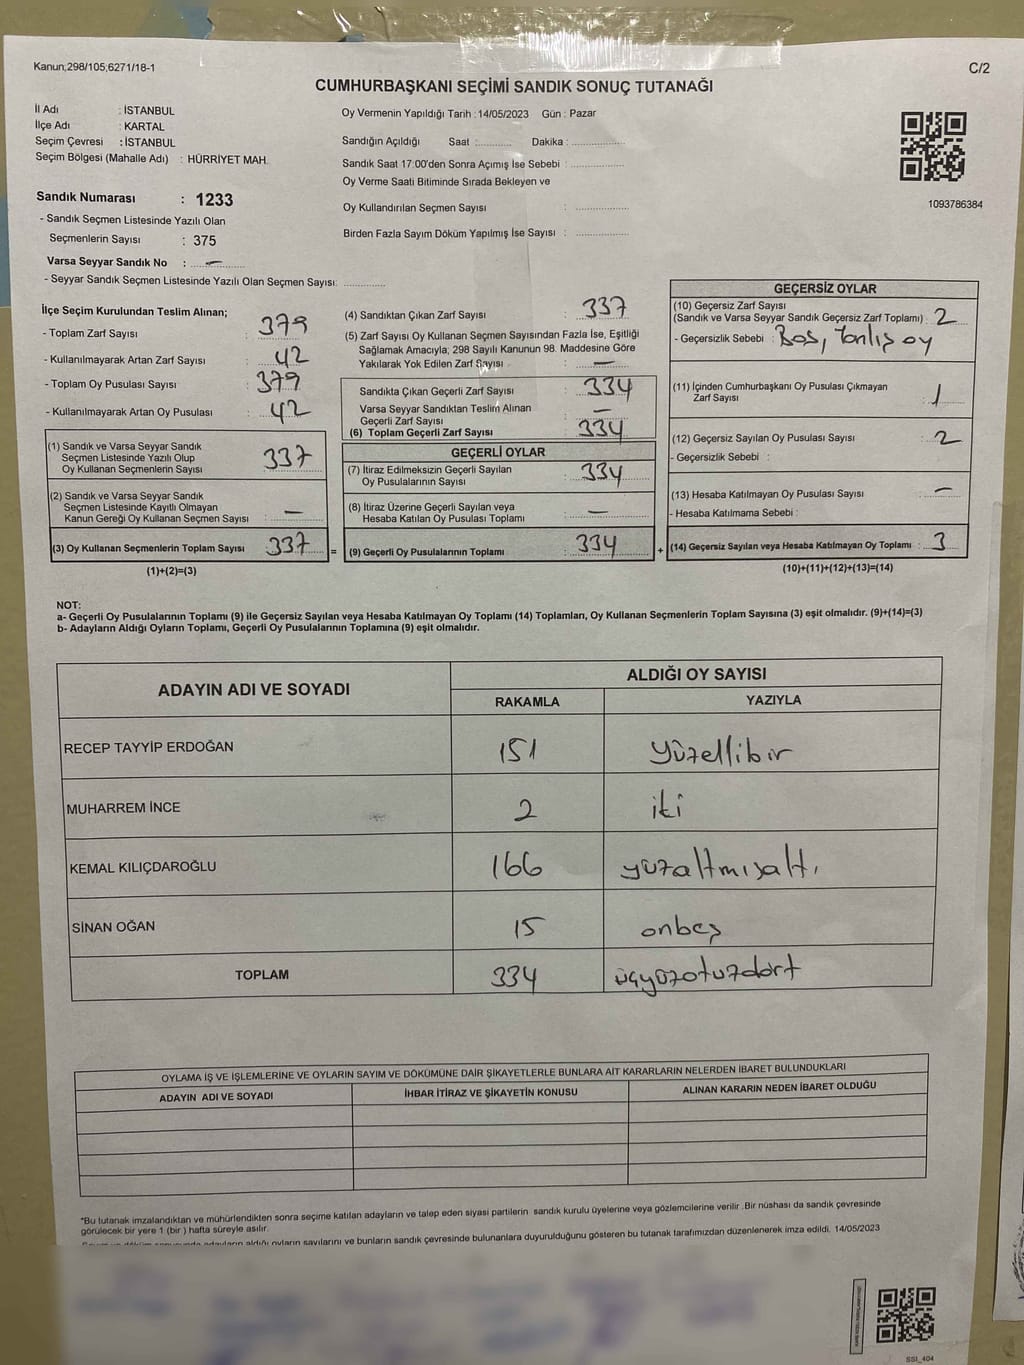 Kanun,298/105,6271/18-1
C/2
CUMHURBAŞKANI SEÇİMİ SANDIK SONUÇ TUTANAĞI
İl Adı : İSTANBUL
İlçe Adı : KARTAL
Seçim Çevresi : İSTANBUL
Seçim Bölgesi (Mahalle Adı) : HÜRRİYET MAH.
Sandık Numarası : 1233
- Sandık Seçmen Listesinde Yazılı Olan
Seçmenlerin Sayısı : 375
Varsa Seyyar Sandık No : —
- Seyyar Sandık Seçmen Listesinde Yazılı Olan Seçmen Sayısı: ............
Oy Vermenin Yapıldığı Tarih : 14/05/2023 Gün : Pazar
Sandığın Açıldığı Saat :............ Dakika : ..................
Sandık Saat 17:00'den Sonra Açımış İse Sebebi : ..................
Oy Verme Saati Bitiminde Sırada Bekleyen ve
Oy Kullandırılan Seçmen Sayısı : ..................
Birden Fazla Sayım Döküm Yapılmış İse Sayısı : ..................
1093786384
İlçe Seçim Kurulundan Teslim Alınan;
- Toplam Zarf Sayısı : 379
- Kullanılmayarak Artan Zarf Sayısı : 42
- Toplam Oy Pusulası Sayısı : 379
- Kullanılmayarak Artan Oy Pusulası : 42
(1) Sandık ve Varsa Seyyar Sandık
Seçmen Listesinde Yazılı Olup
Oy Kullanan Seçmenlerin Sayısı : 337
(2) Sandık ve Varsa Seyyar Sandık
Seçmen Listesinde Kayıtlı Olmayan
Kanun Gereği Oy Kullanan Seçmen Sayısı : —
(3) Oy Kullanan Seçmenlerin Toplam Sayısı 337 =
(1)+(2)=(3)
(4) Sandıktan Çıkan Zarf Sayısı : 337
(5) Zarf Sayısı Oy Kullanan Seçmen Sayısından Fazla İse, Eşitliği
Sağlamak Amacıyla; 298 Sayılı Kanunun 98. Maddesine Göre
Yakılarak Yok Edilen Zarf Sayısı : —
Sandıkta Çıkan Geçerli Zarf Sayısı : 334
Varsa Seyyar Sandıktan Teslim Alınan
Geçerli Zarf Sayısı : —
(6) Toplam Geçerli Zarf Sayısı : 334
GEÇERLİ OYLAR
(7) İtiraz Edilmeksizin Geçerli Sayılan
Oy Pusulalarının Sayısı : 334
(8) İtiraz Üzerine Geçerli Sayılan veya
Hesaba Katılan Oy Pusulası Toplamı : —
(9) Geçerli Oy Pusulalarının Toplamı : 334 +
GEÇERSİZ OYLAR
(10) Geçersiz Zarf Sayısı
(Sandık ve Varsa Seyyar Sandık Geçersiz Zarf Toplamı) : 2
- Geçersizlik Sebebi : Boş, Yanlış oy
(11) İçinden Cumhurbaşkanı Oy Pusulası Çıkmayan
Zarf Sayısı : 1
(12) Geçersiz Sayılan Oy Pusulası Sayısı : 2
- Geçersizlik Sebebi :
(13) Hesaba Katılmayan Oy Pusulası Sayısı : —
- Hesaba Katılmama Sebebi :
(14) Geçersiz Sayılan veya Hesaba Katılmayan Oy Toplamı : 3
(10)+(11)+(12)+(13)=(14)
NOT:
a- Geçerli Oy Pusulalarının Toplamı (9) ile Geçersiz Sayılan veya Hesaba Katılmayan Oy Toplamı (14) Toplamları, Oy Kullanan Seçmenlerin Toplam Sayısına (3) eşit olmalıdır. (9)+(14)=(3)
b- Adayların Aldığı Oyların Toplamı, Geçerli Oy Pusulalarının Toplamına (9) eşit olmalıdır.
ADAYIN ADI VE SOYADI
ALDIĞI OY SAYISI
RAKAMLA YAZIYLA
RECEP TAYYİP ERDOĞAN 151 Yüzellibir
MUHARREM İNCE 2 iki
KEMAL KILIÇDAROĞLU 166 yüzaltmışaltı
SİNAN OĞAN 15 onbeş
TOPLAM 334 üçyüzotuzdört
OYLAMA İŞ VE İŞLEMLERİNE VE OYLARIN SAYIM VE DÖKÜMÜNE DAİR ŞİKAYETLERLE BUNLARA AİT KARARLARIN NELERDEN İBARET BULUNDUKLARI
ADAYIN ADI VE SOYADI İHBAR İTİRAZ VE ŞİKAYETİN KONUSU ALINAN KARARIN NEDEN İBARET OLDUĞU
*Bu tutanak imzalandıktan ve mühürlendikten sonra seçime katılan adayların ve talep eden siyasi partilerin sandık kurulu üyelerine veya gözlemcilerine verilir .Bir nüshası da sandık çevresinde
görülecek bir yere 1 (bir ) hafta süreyle asılır.
adayların aldığı oyların sayılarını ve bunların sandık çevresinde bulunanlara duyurulduğunu gösteren bu tutanak tarafımızdan düzenlenerek imza edildi. 14/05/2023
SSI_404